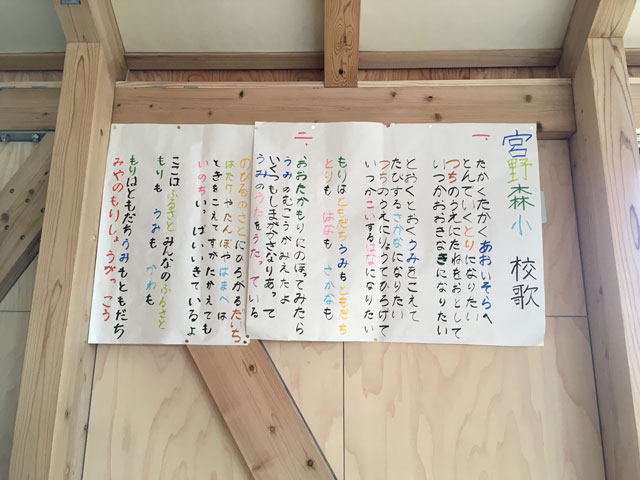 宮野森小 校歌
一、
たかくたかく あおいそらへ
とんでいくとりになりたい
つちのうえにたねをおとして
いつかおおきなきになりたい
とおくとおくうみをこえて
たびするさかなになりたい
つちのうえにりょうてひろげて
いつかこいするはなになりたい
もりはともだちうみもともだち
とりも はなも さかなも
二、
おおたかもりにのぼってみたら
うみのむこうがみえたよ
いくつもしまがかさなりあって
うみのうたをうたっている
のびるのさとにひろがるだいち
はたけやたんぼやはまべは
ときをこえてすがたかえても
いのちいっぱいいきているよ
ここはふるさとみんなのふるさと
もりも うみも かわも
もりはともだちうみもともだち
みやのもりしょうがっこう